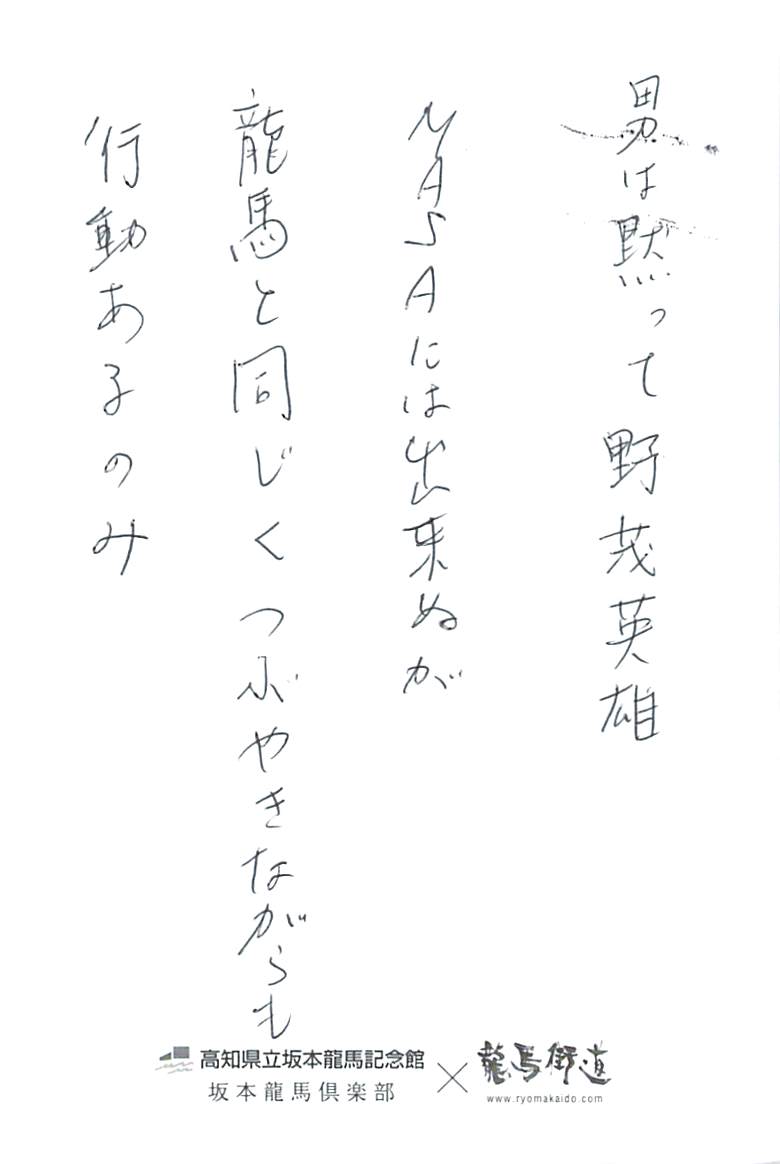 男は黙って野茂英雄
NASAには出来ぬが
龍馬と同じくつぶやきながらも
行動あるのみ
高知県立坂本龍馬記念館
坂本龍馬倶楽部
×
龍馬街道
www.ryomakaido.com